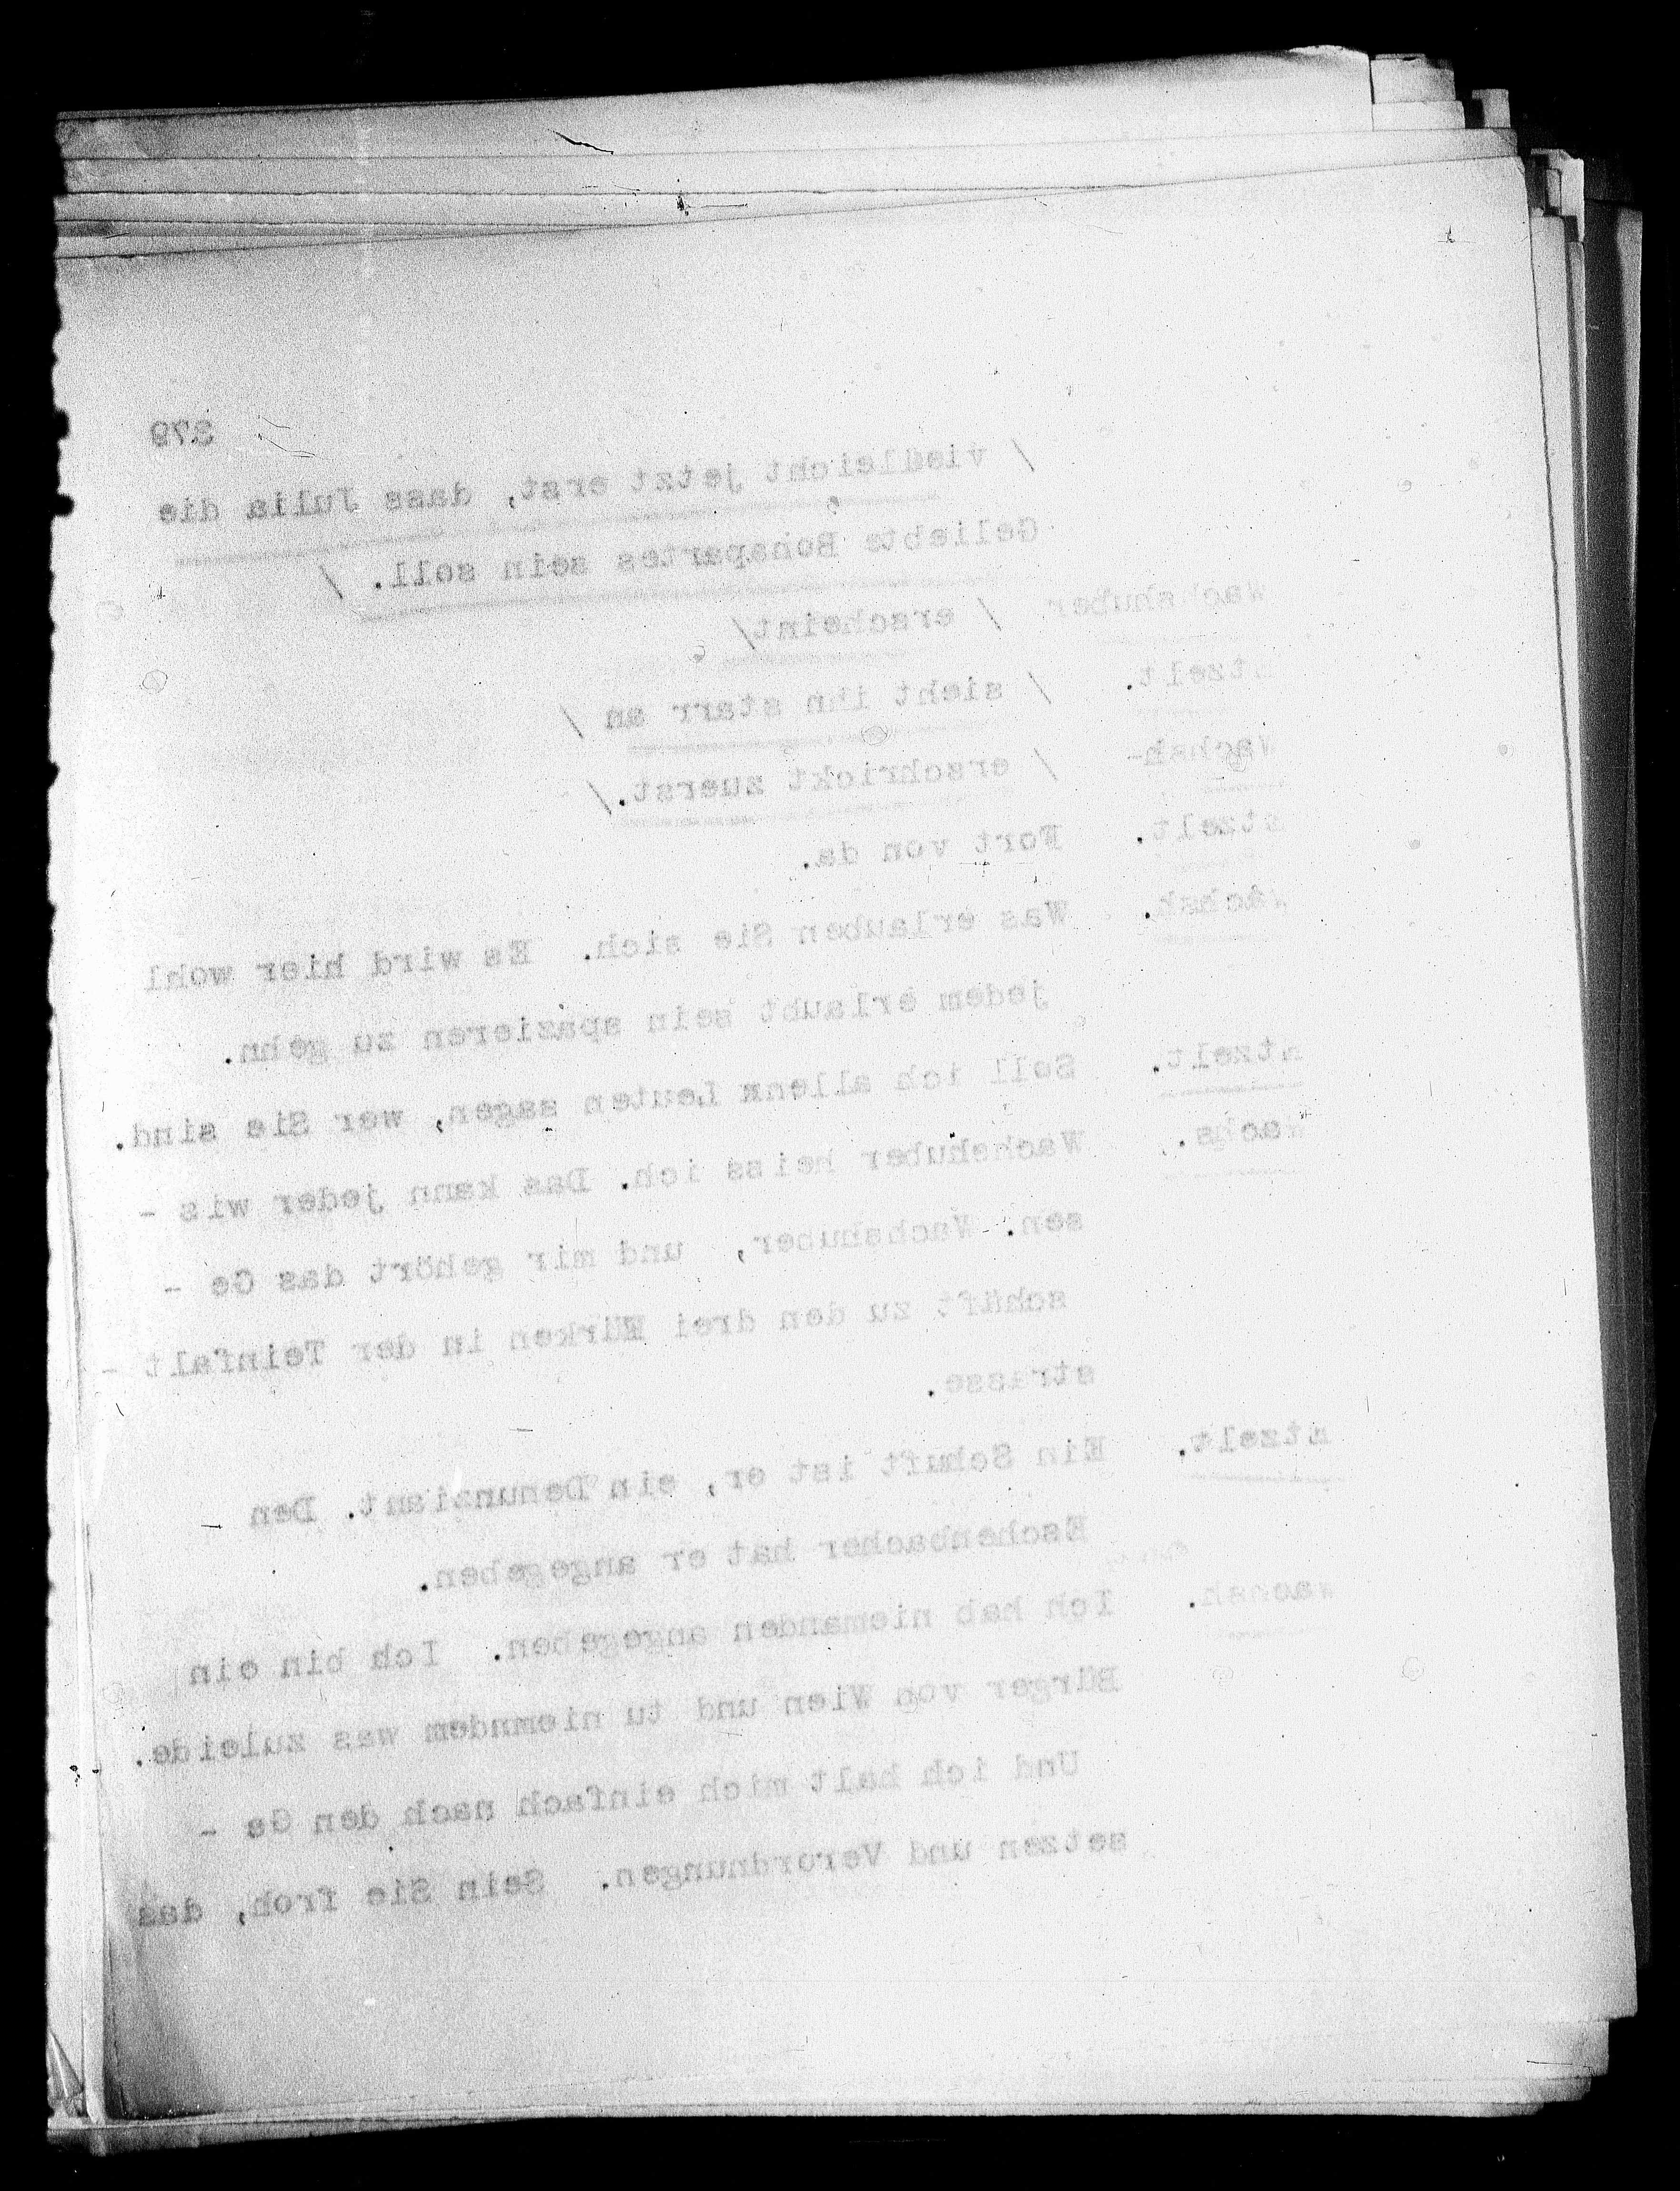 379
/ vielleicht jetzt erst, dass Julia die
Geliebte Bonapartes sein soll. /
Wachshuber / erscheint/
tzelt. / sieht ihn starr an /
Wachsh- / erschrickt zuerst./
tzelt. Fort von da.
Wachsh. Was erlauben Sie sich. Es wird hier wohl
jedem erlaubt sein spazieren zu gehn.
tzelt. Soll ich allenn Leuten sagen, wer Sie sind.
Wachs. Wachshuber heiss ich. Das kann jeder wis -
sen. Wachshuber, und mir gehört das Ge -
schäft zu den drei in der Teinfalt -
strasse.
tzelt. Ein Schuft ist er, ein Denunziant. Den
Eschenbacher hat er angegeben.
Wachsh. Ich hab niemanden angegeben. Ich bin ein
Bürger von Wien und tu niemndem was zuleide.
Und ich halt mich einfach nach den Ge -
setzen und Verordnungen. Sein Sie froh, das